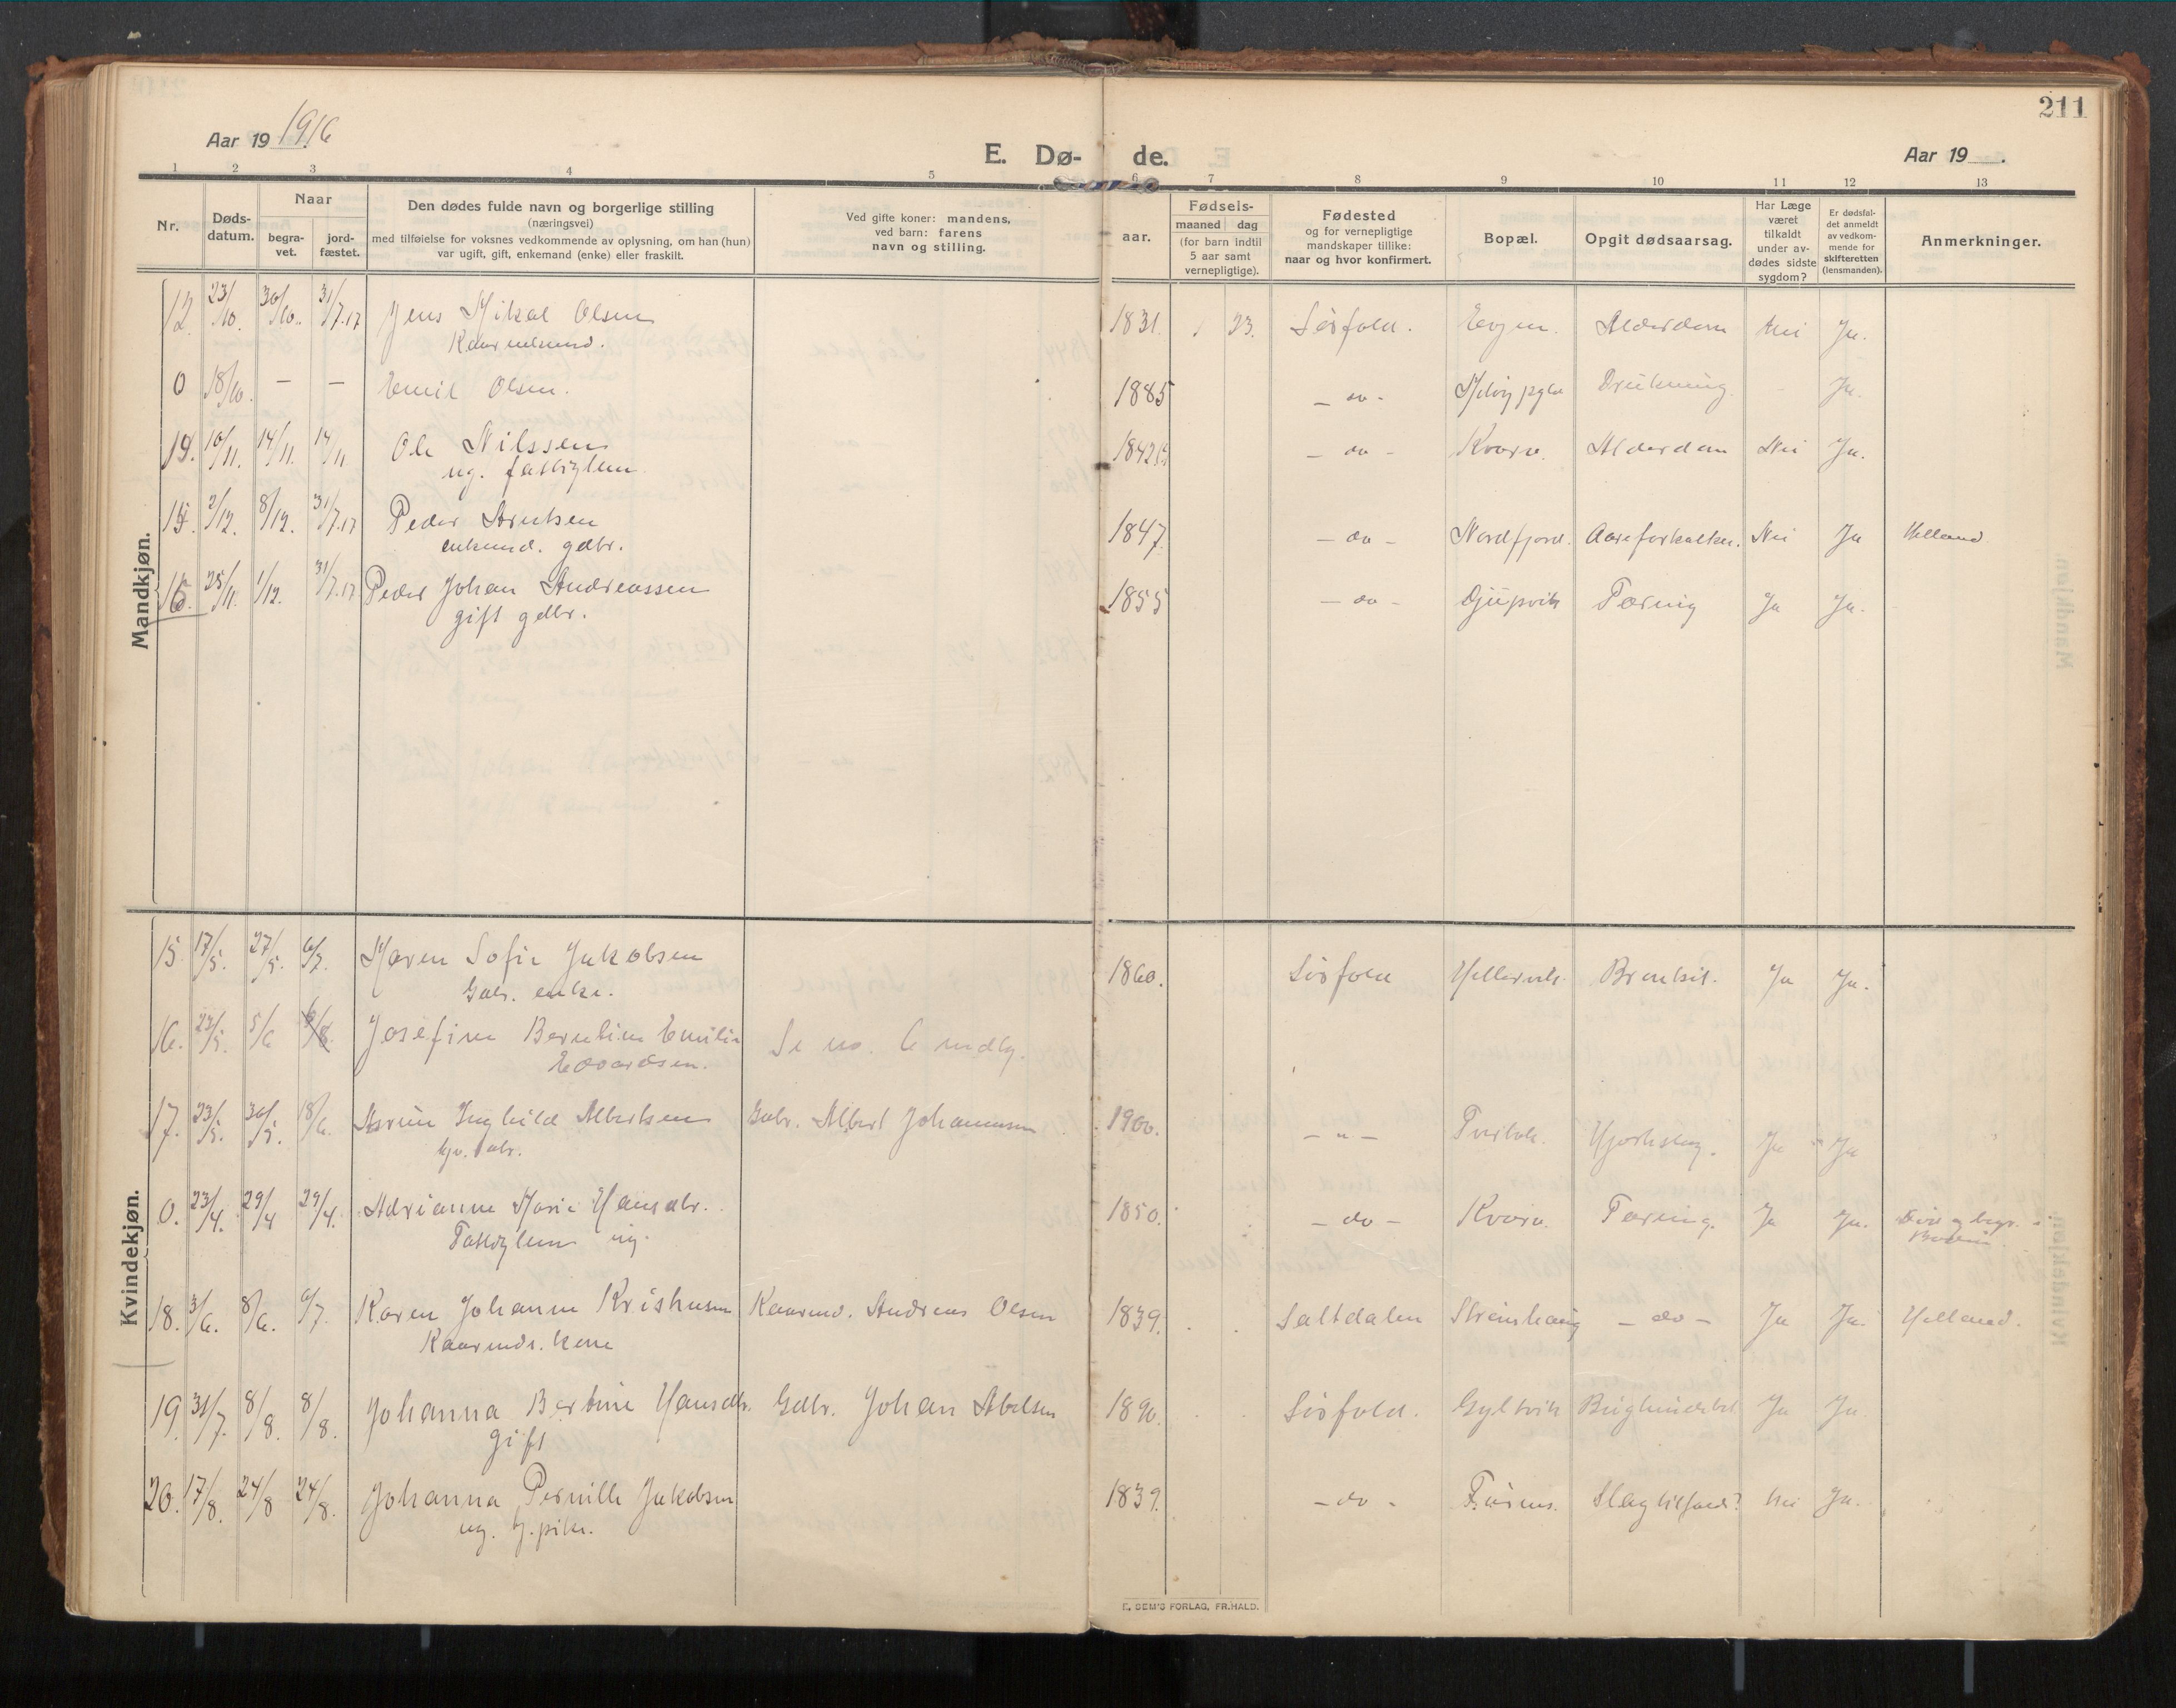 211
Aar 19 1916
E. Dø- de.
Aar 19 .
1 2 3 4 5 6 7 8 9 10 11 12 13
Nr.
Døds-
datum.
Naar
begra-
vet.
jord-
fæstet.
Den dødes fulde navn og borgerlige stilling
(næringsvei)
med tilføielse for voksnes vedkommende av oplysning, om han (hun)
var ugift, gift, enkemand (enke) eller fraskilt.
Ved gifte koner: mandens,
ved barn: farens
navn og stilling.
aar.
Fødsels-
maaned dag
(for barn indtil
5 aar samt
vernepligtige).
Fødested
og for vernepligtige
mandskaper tillike:
naar og hvor konfirmert.
Bopæl.
Opgit dødsaarsag.
Har Læge
været
tilkaldt
under av-
dødes sidste
sygdom?
Er dødsfal-
det anmeldt
av vedkom-
mende for
skifteretten
(lensmanden).
Anmerkninger.
Mandkjøn.
12. 23/10. 30/10. 31/7.17 Jens Mikal Olsen 1831. 23. Sørfold. Evjen. Alderdom Nei Ja.
Kaarmand.
0 18/10. — — Emil Olsen. 1885 - do - Drukning. Ja.
14. 10/11. 14/11. 14/11 Ole Nilssen 1842 - do - Kvarv. Alderdom Nei Ja.
ug. fattiglem
15. 2/12. 8/12. 31/7.17 Peder Arntsen 1847. - do - Nordfjord. Aareforkalkn. Nei Ja Helland
enkemd. gdbr.
16. 25/11. 1/12. 31/7.17 Peder Johan Andreassen 1855 - do - Djupvik Tæring Ja Ja.
gift gdbr.
Kvindekjøn.
15 17/5. 27/5. 6/7. Maren Sofie Jakobsen 1860. Sørfold Hellarvik. Ja Ja.
Gbr. enke.
16. 23/5. 5/6 Josefine Berntine Emilie Se no. 6 mdlg.
Edvardsen.
17. 23/5. 30/5. 18/6. Inghild Albertsen Gdbr. Albert Johannesen 1900. - " - Ja Ja
0. 23/4. 29/4 29/4. Adrianne Marie Hansdtr. 1850. - do - Kvarv. Tæring. Ja Ja. Død og begr.
Fattiglem ug. Bodin.
18. 3/6. 8/6. 6/7. Karen Johanne Kristensen Kaarmd. Andreas Olsen 1839. Saltdalen Streushaug - do - Ja Ja. Helland.
Kaarmds. kone
19. 31/7. 8/8. 8/8. Johanna Bertine Hansdtr. Gdbr. Johan Abelsen 1890. Sørfold. Gyltvik Ja Ja
gift
20. 17/8. 24/8 24/8. Johanna Pernille Jakobsen 1839. - do - Slagtilfæld? Nei Ja.
ug. tj.pike.
E. SEM'S FORLAG, FR.HALD.